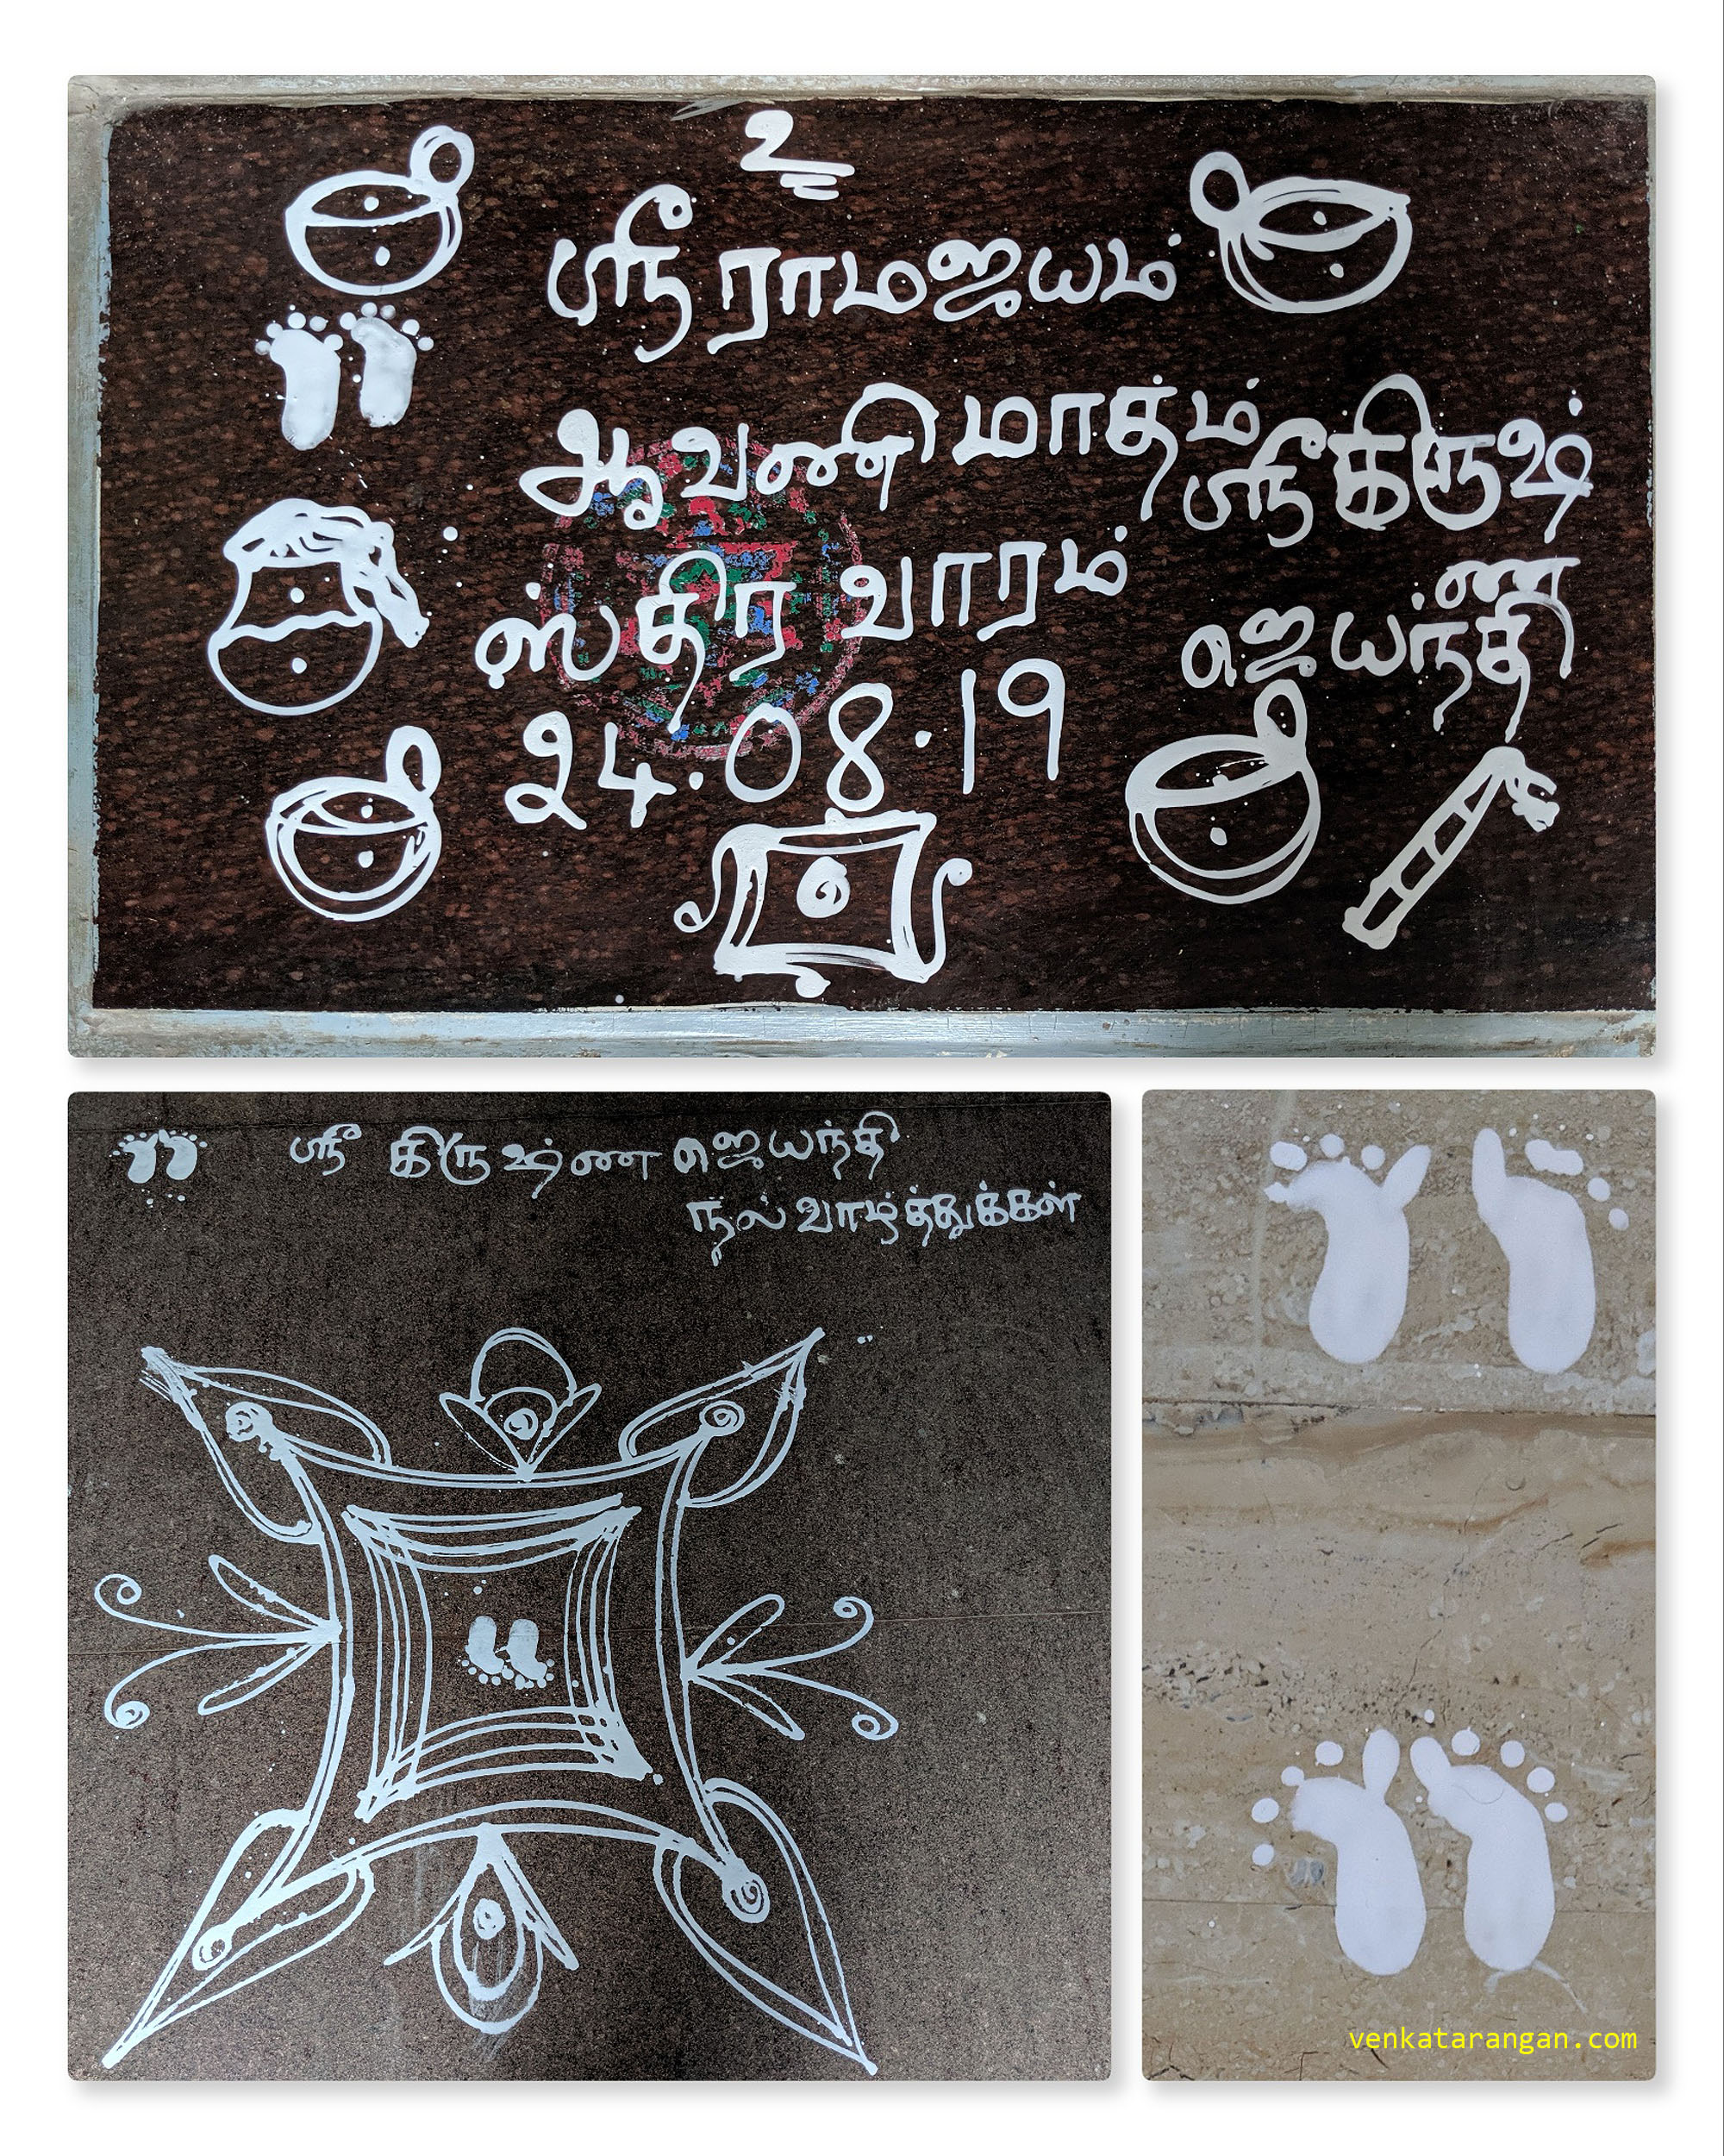 உ
ஸ்ரீ ராமஜயம்
ஆவணி மாதம்
ஸ்திர வாரம்
24.08.19
ஸ்ரீ கிருஷ்
ண
ஜெயந்தி
ஸ்ரீ கிருஷ்ண ஜெயந்தி
நல் வாழ்த்துக்கள்
venkatarangan.com